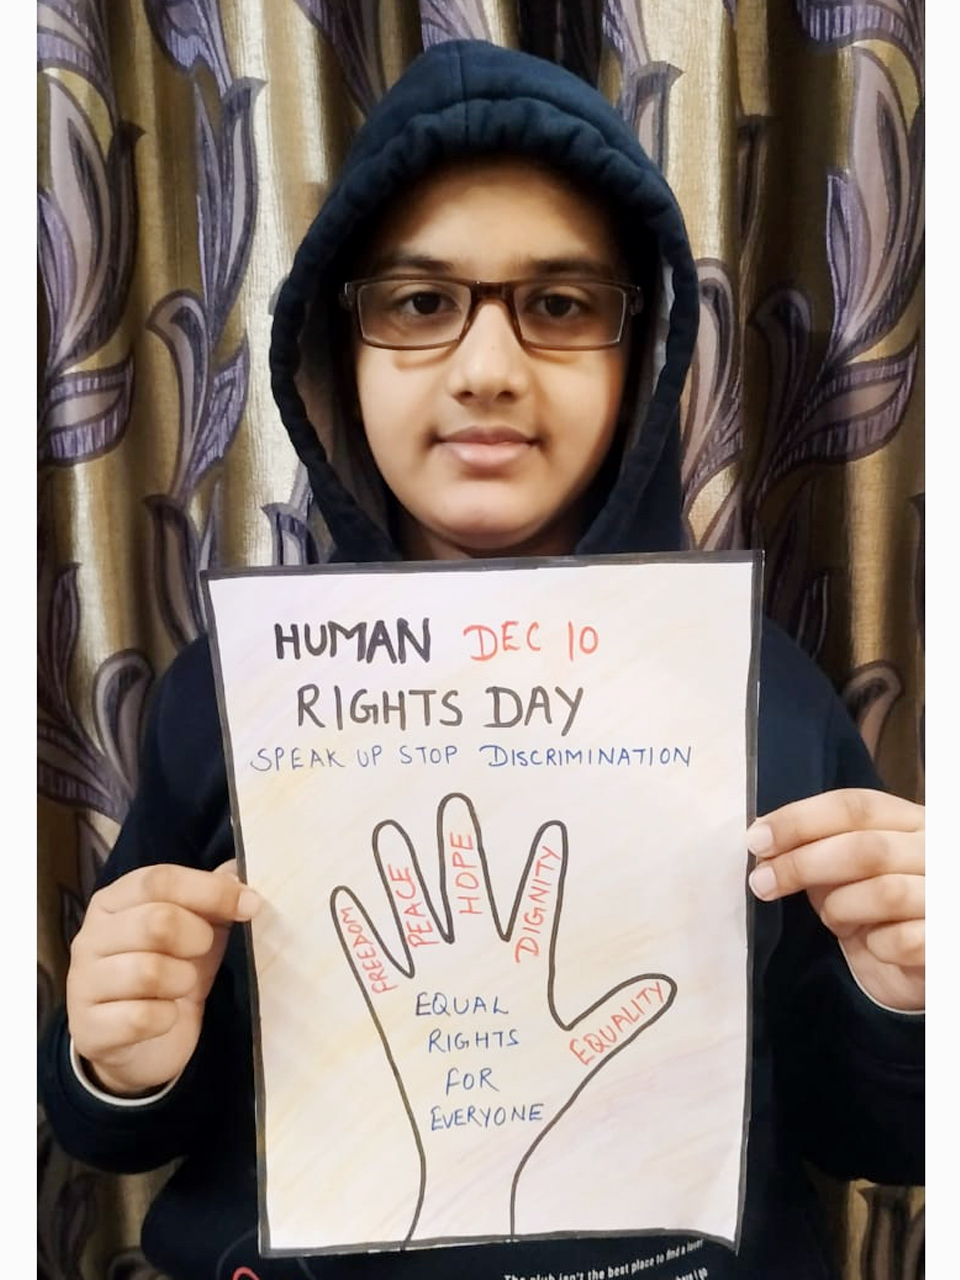 HUMAN DEC 10
RIGHTS DAY
SPEAK UP STOP DISCRIMINATION
FREEDOM
PEACE
HOPE
DIGNITY
EQUALITY
EQUAL
RIGHTS
FOR
EVERYONE
The club isn't the best place to find a lover